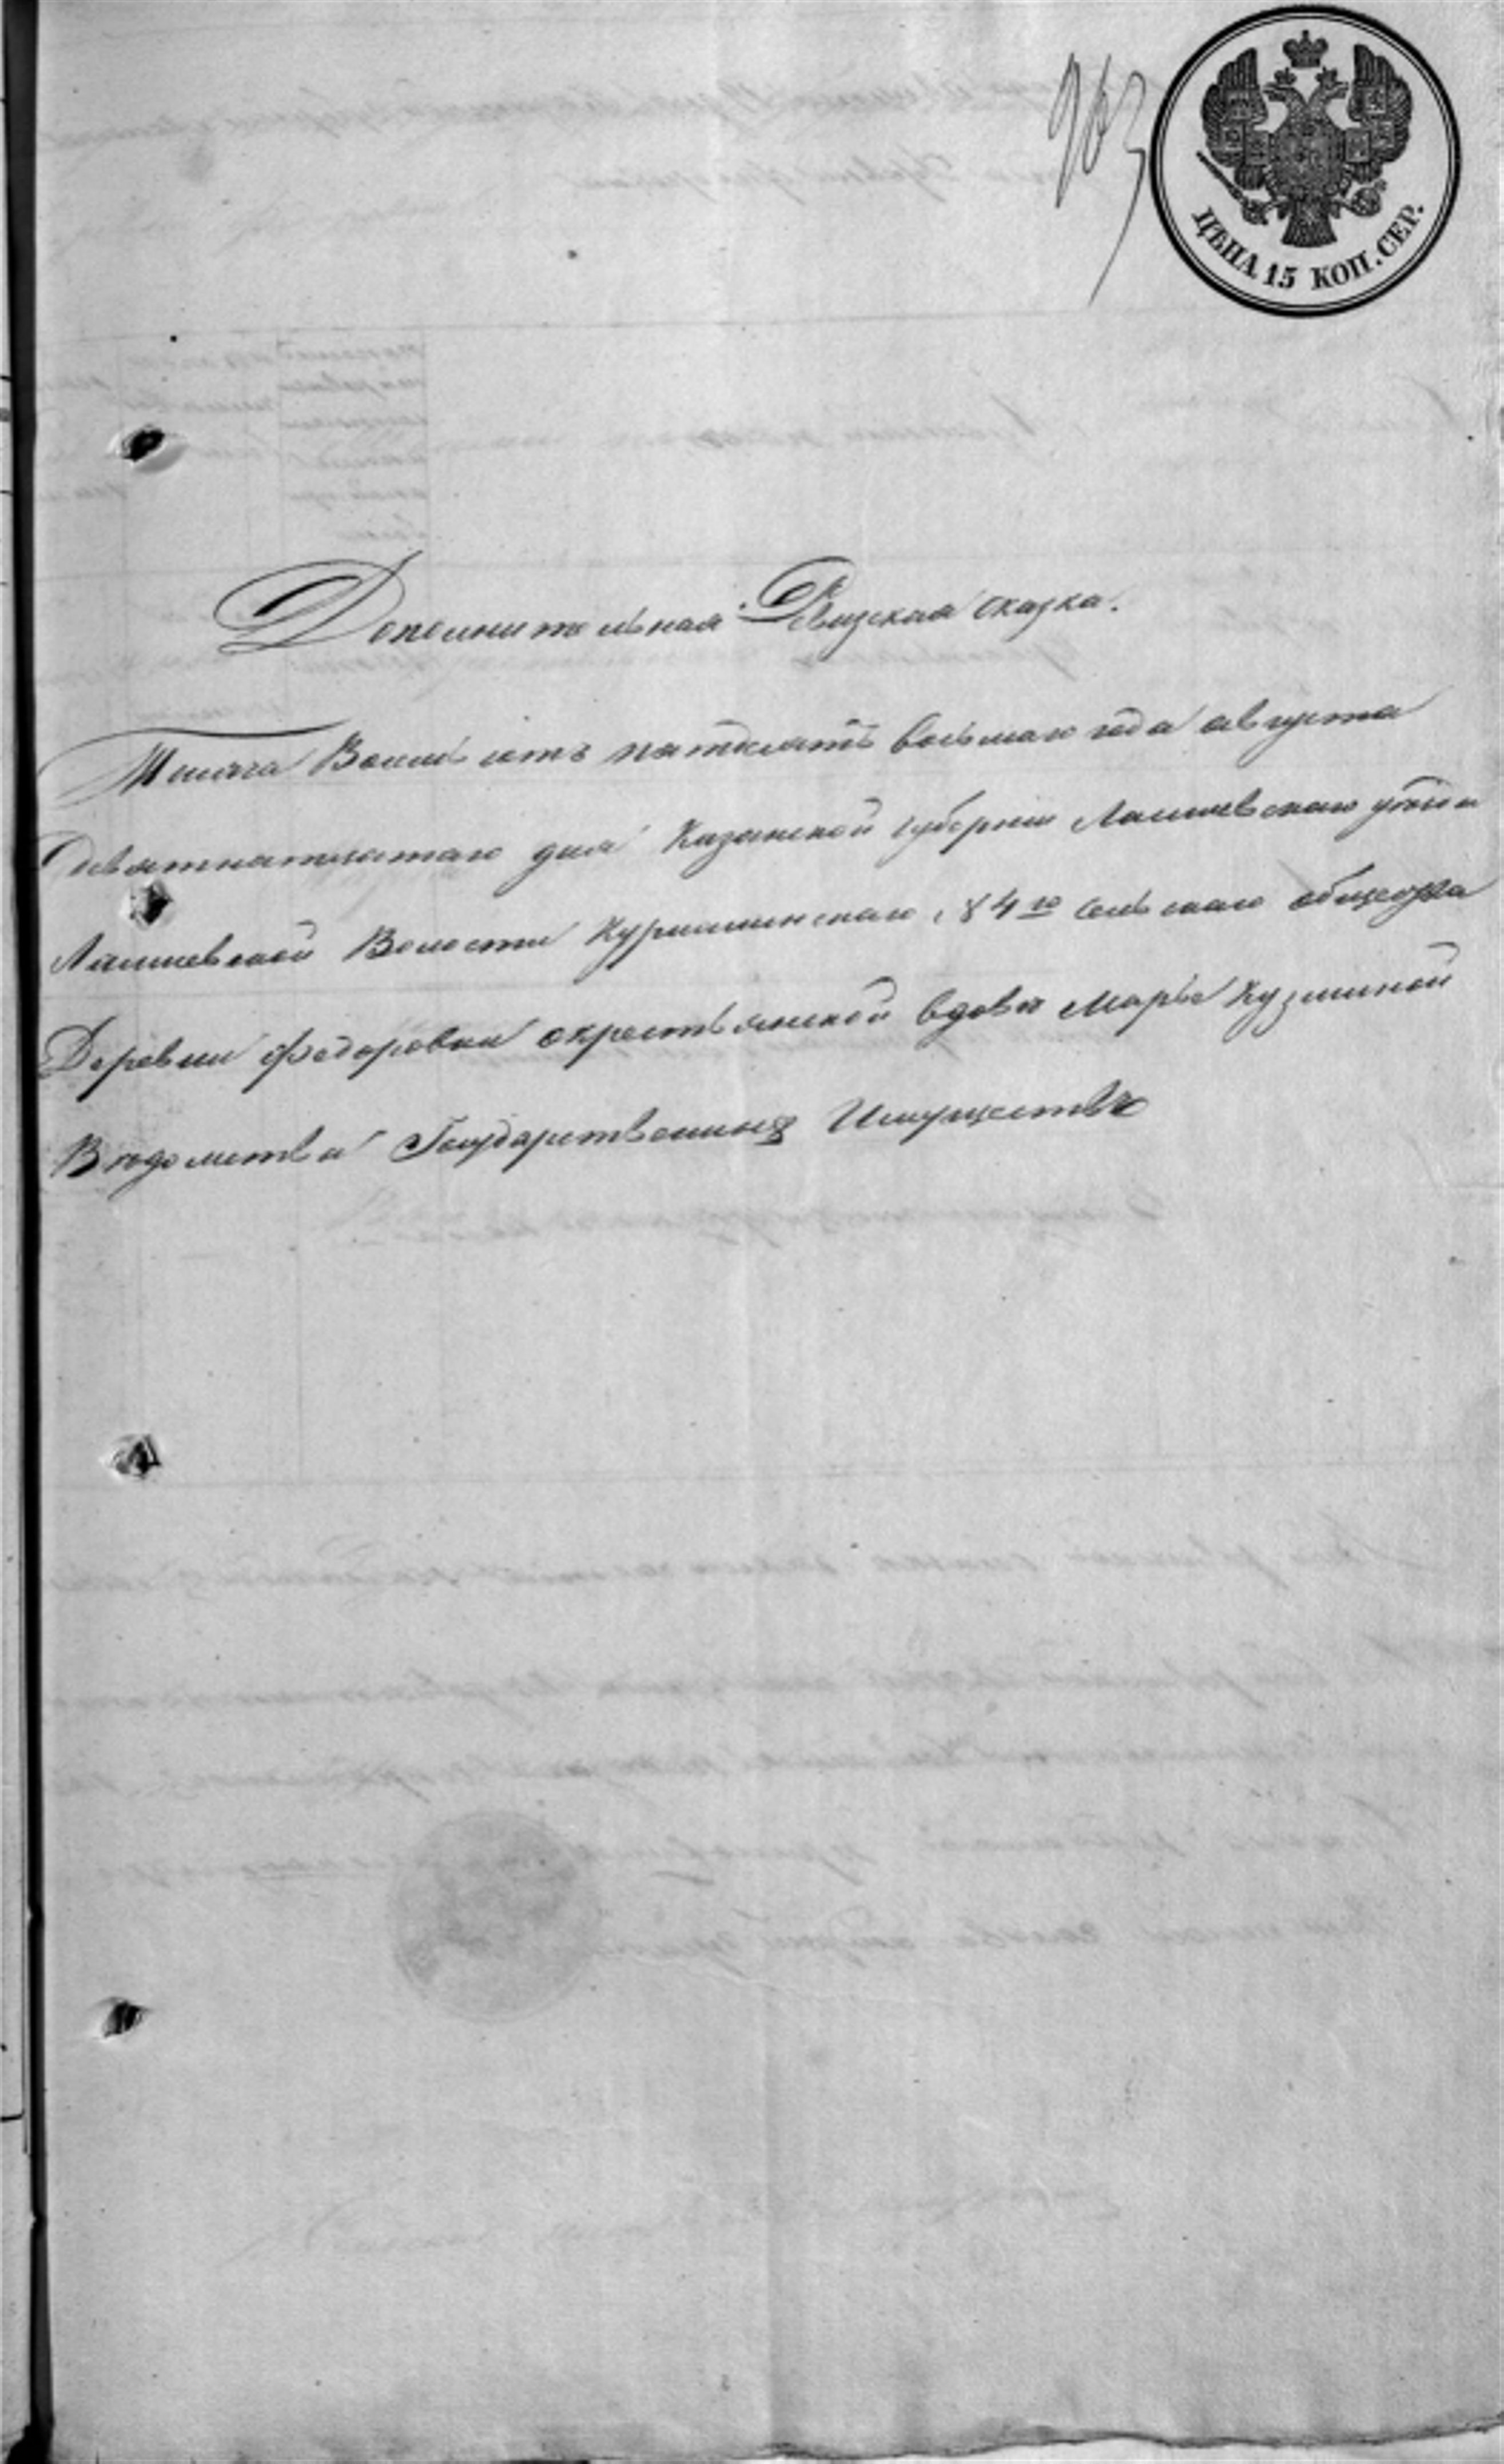 963
ЦѢНА 15 КОП. СЕР.
Дополнительная Ревизская сказка.
Тысяча Восемь сотъ пятьдесятъ восьмаго года августа
девятнатцатаго дня Казанской губерніи Лаишевскаго уѣзда
Лаишевской Волости 84го сельскаго общества
Деревни Федоровки окрестьянской вдовѣ Марье Кузминой
Вѣдомства Государственныхъ Имуществъ